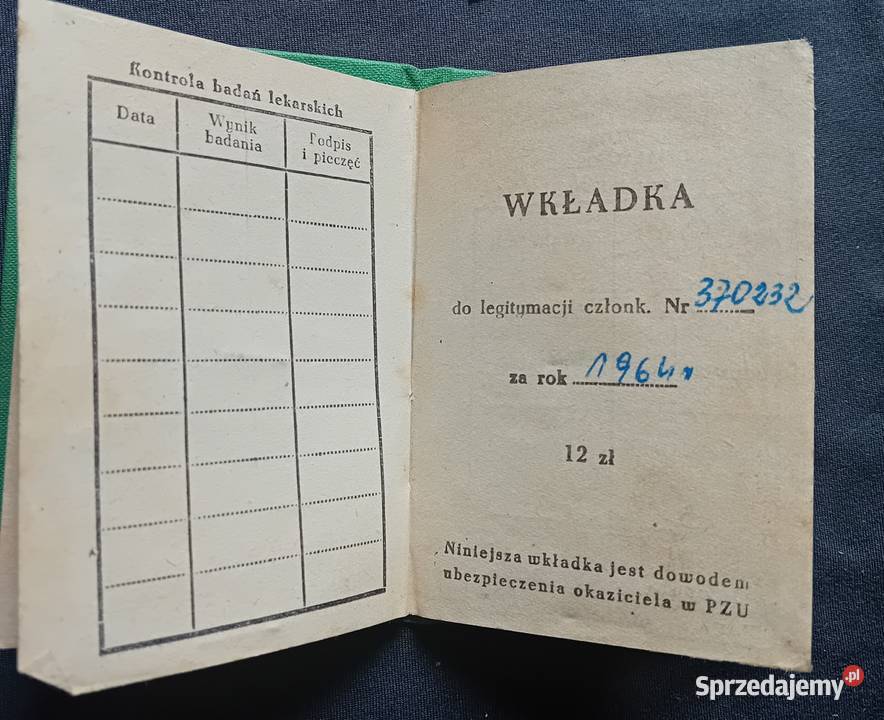 Kontrola badań lekarskich
Data
Wynik
badania
Podpis
i pieczęć
WKŁADKA
do legitymacji członk. Nr 370232
za rok 1964r
12 zł
Niniejsza wkładka jest dowodem
ubezpieczenia okaziciela w PZU
Sprzedajemy.pl